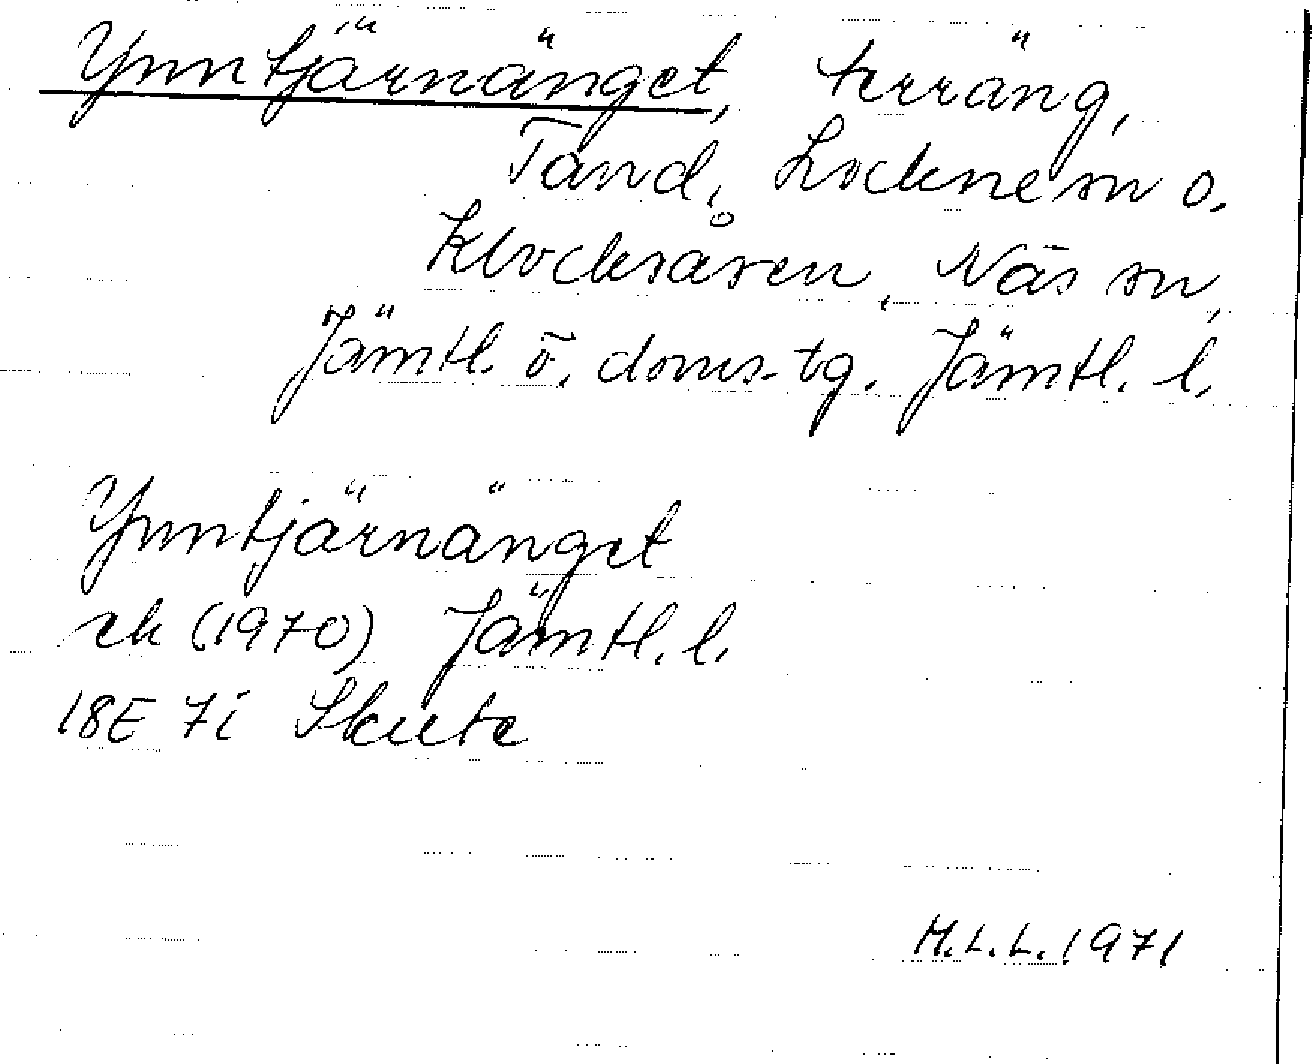 Ynntjärnänget, terräng,
Tand, Lockne sn o.
Klocksåsen, Näs sn,
Jämtl. ö. doms. tg. Jämtl. l.
Ynntjärnänget
ek (1970) Jämtl. l.
18E 7i Skute
M.L.L. 1971